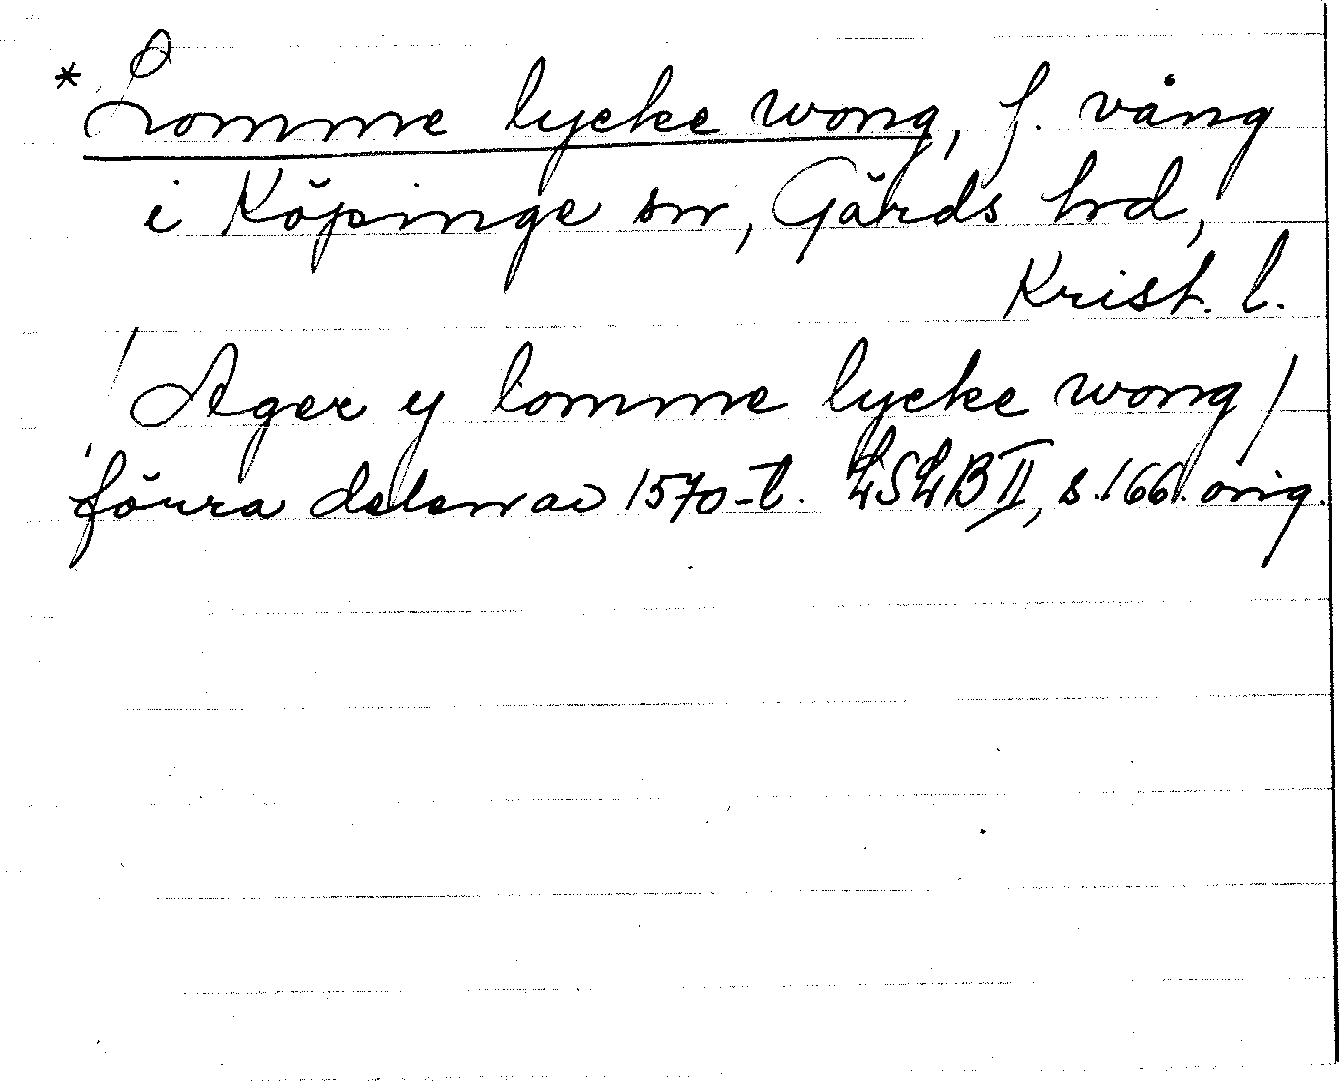 *Lomme lycke wong, f. vång
i Köpinge sn, Gärds hrd,
Krist. l.
/Ager y lomme lycke wong/
förra delen av 1570-t. LSLB II, s. 166. orig.